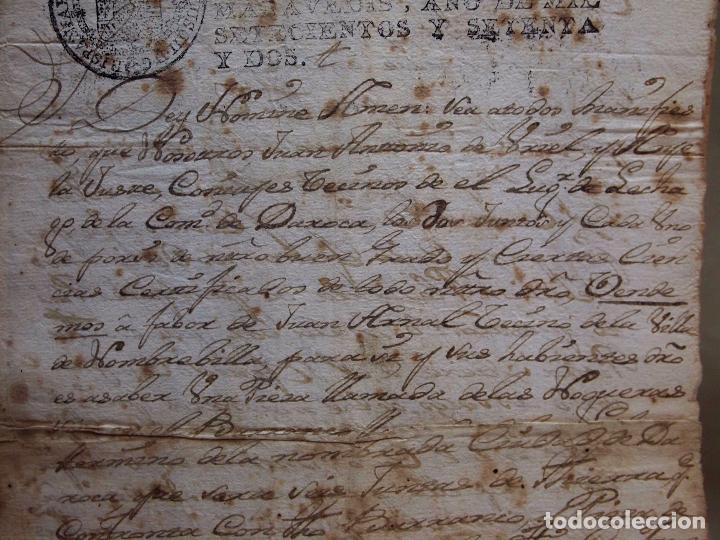 MARAVEDIS, AÑO DE MIL
SETECIENTOS Y SETENTA
Y DOS.
Dey Nomine Amen: Sea atodos manifies
to, que Nosotros Juan Antonio de Uriel, y
la Jusre, Conyuges Vecinos de el Lugr. de Lecha
go de la Comd. de Daroca, los Dos Juntos y Cada Uno
de porssi de nrõ buen Grado y Ciertas Cien
cias Certificados de todo nrõ drõ, Vende
mos â fabor de Juan Arnal Vecino de la Villa
de Nombrebilla, para si y sus habientes drõ
es asaber Una Pieza llamada delas Nogueras
termino dela nombrada Ciudad de Da
roca que sera seis Juntas de tierra q.
Confronta Con dho Barranco,
todocoleccion.net